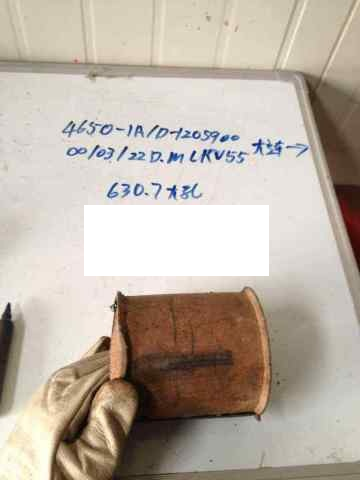 4650-1A/D-1205900
00/03/22D.M LKV55 大连→
630.7大孔